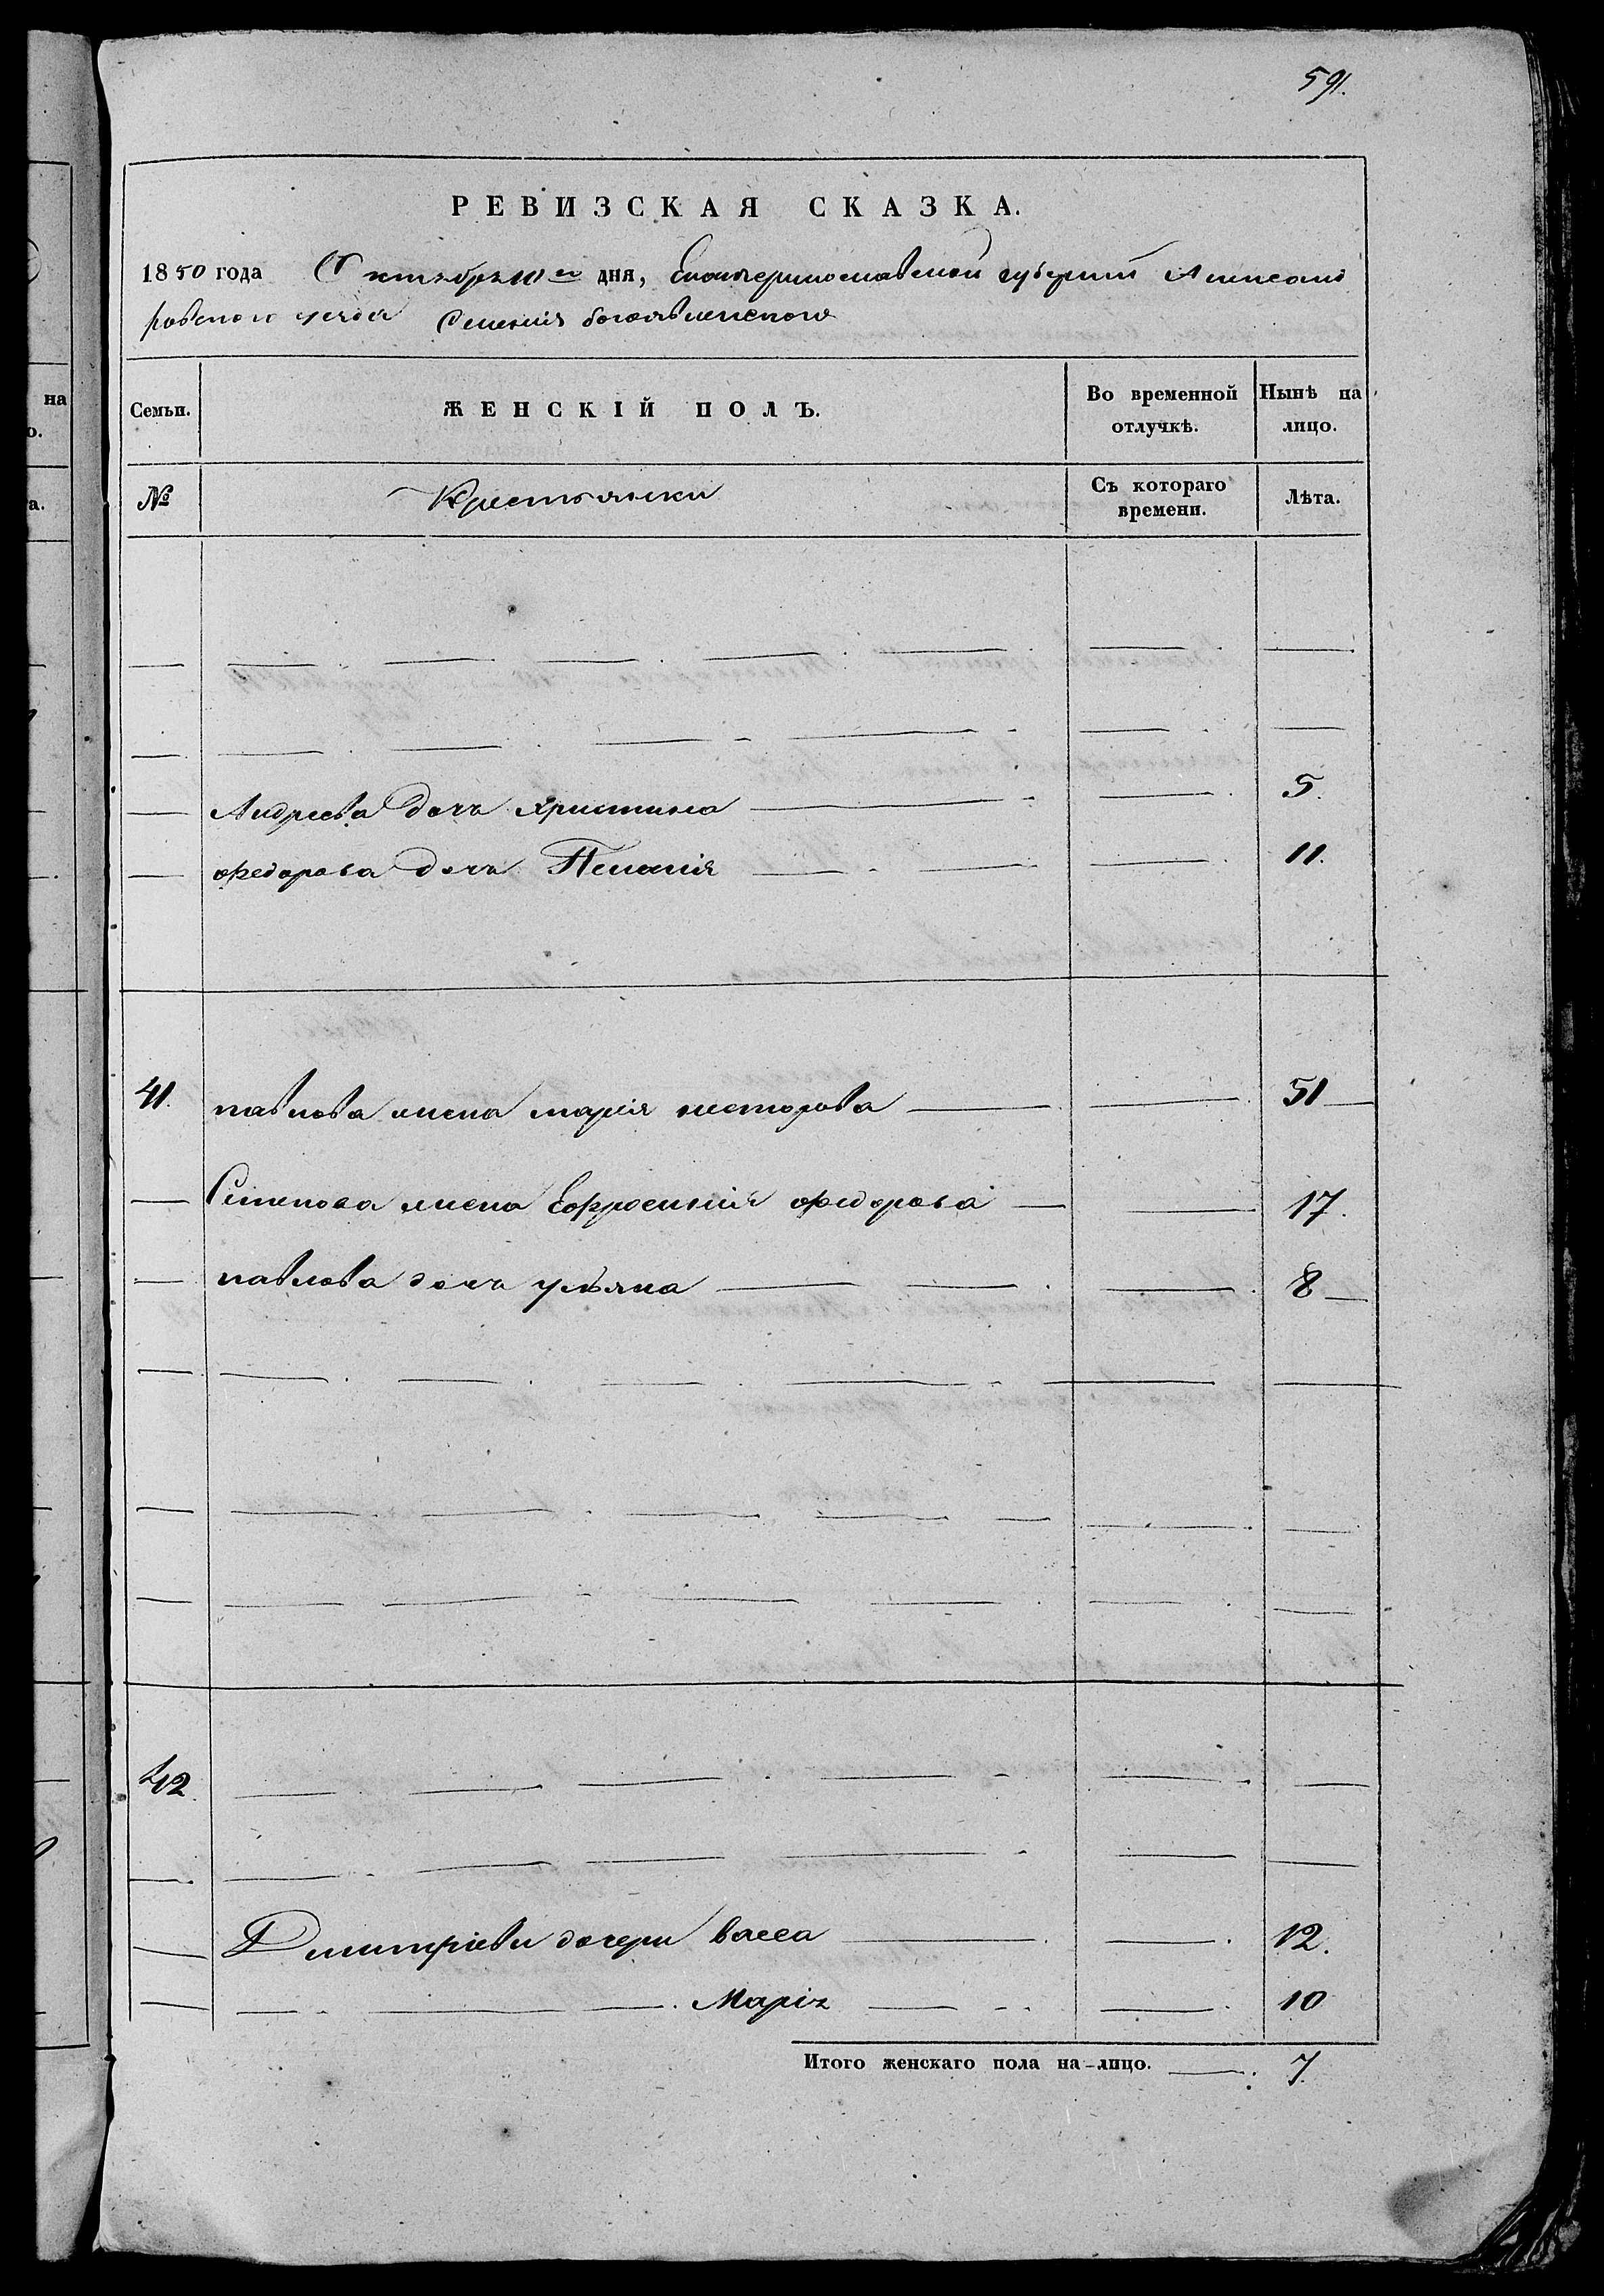 591.
РЕВИЗСКАЯ СКАЗКА.
1850 года Октября 10го дня, Екатеринославской губернии Александ
ровского уезда Селения богоявленского
на
о.
а.
Семьи. ЖЕНСКІЙ ПОЛЪ. Во временной отлучкѣ. Нынѣ на лицо.
№ Крестьянки Съ котораго времени. Лѣта.
— — — — — — —
— — — — — — —
— Андреева дочь христина — — 5.
— федорова дочь Пелагія — — — 11.
41. павлова жена марія несторова — — 51 —
— Семенова жена Ефросинія федорова — — 17.
— павлова дочь ульяна — — — 8 —
— — — — — — —
— — — — — — — —
— — — — — — —
42. — — — — — —
— — — — — — —
— Димитріевы дочери васса — — 12.
— — — — Марія — — — 10
Итого женскаго пола на-лицо. — 7.